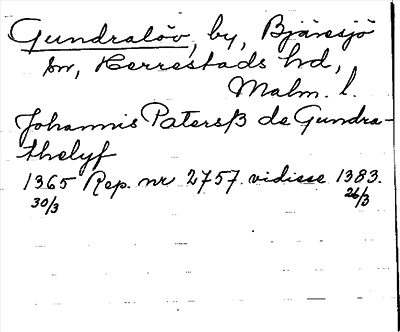 Gundralöv, by, Bjäresjö
sn, Herrestads hd,
Malm. l.
Johannis Patersß de Gundra-
thelyf
1365 Rep. nr 2757. vidisse 1383.
30/3 26/3